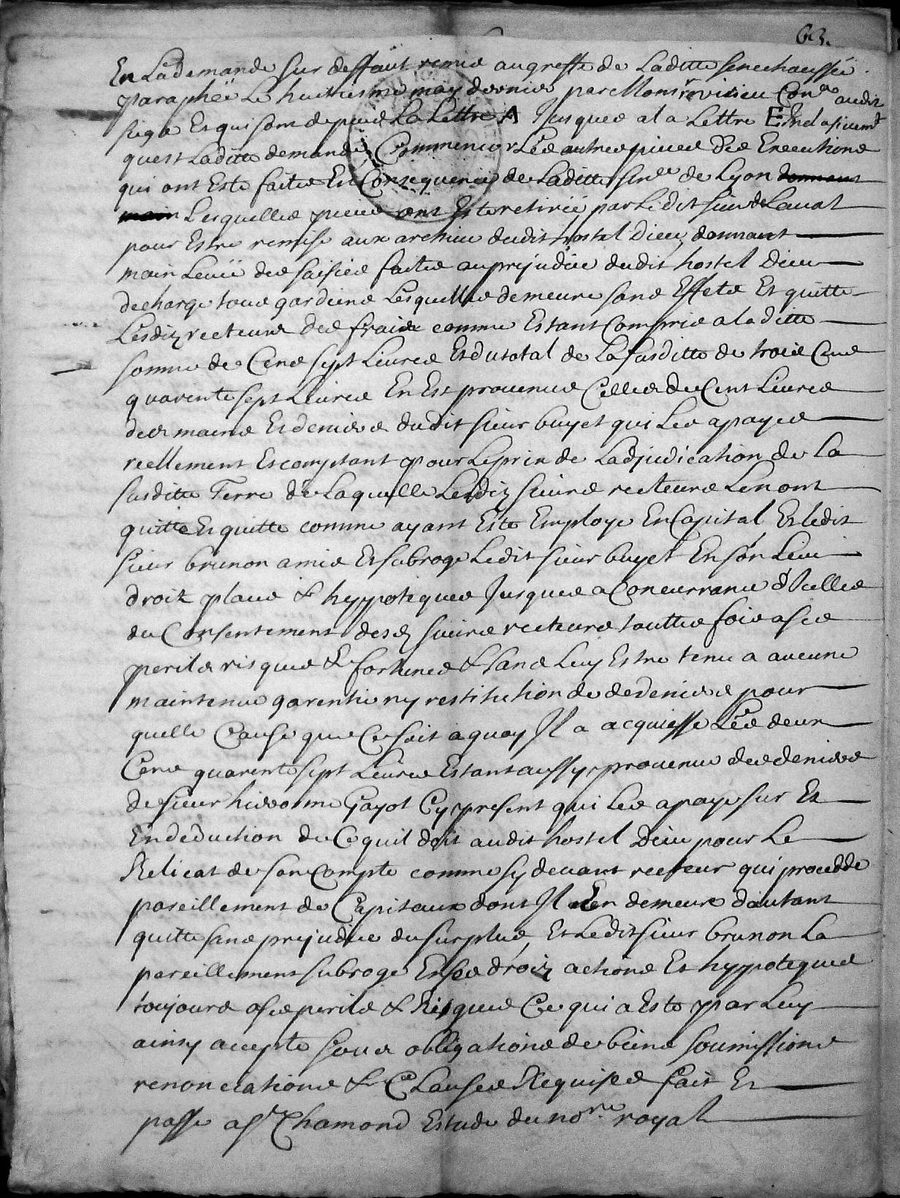 63.
En Lademande sur deffaut remis augreffe de Laditte Senechaussée
paraphée Le huitiesme may dernier par Monsr Con.er audit
siege Et qui sont depuis La Lettre A Jusques a la Lettre E Inclusivemt
quest Laditte demande Commencer Les autres pieces des Executions
qui ont Esté faites En Consequence de Laditte Sen.ce de Lyon donnant
main Lesquelles pieces ont Esté retirée par Ledit sieur de Laval
pour Estre remise aux archives dudit hostel Dieu, donnant
main Levée des saisies faites auprejudice dudit hostel Dieu
decharge tous gardiens Lesquelles demeure sans Effets Et quitte
Lesdiz recteurs des fraix comme Estant Compris a laditte
somme de Cens sept Livres Et du total de La susditte de trois Cens
quarente sept Livres En Est provenue Celles de Cent Livres
des mains Et deniers dudit sieur buyet qui Les a payes
reellement Et comptant pour Le prix de Ladjudication de La
susditte Terre de Laquelle Lesdiz sieurs recteurs Lenont
quitté Et quitte comme ayant Esté Employé En Capital Et ledit
sieur brunon a mis Et subrogé Ledit sieur buyet En son Lieu
droit place & hyppoteques Jusques a Concurrance d'Icelles
du Consentement desd sieurs recteurs touttes fois a ses
perils risques & fortunes & sans Luy Estre tenu a aucune
maintenue garentie ny restitution de deniers pour
quelle Cause que Ce soit a quoy Il a acquiessé Les deux
Cens quarente sept Livres Estant aussy provenus des deniers
de sieur hierosme Gayot Cy present qui Les a payé sur Et
En deduction de Ce quil doit audit hostel Dieu pour Le
Relicat de son Compte comme cy devant recteur qui procedde
pareillement de Capitaux dont Il En demeure d'autant
quitte sans prejudice du surplus, Et Ledit sieur brunon La
pareillement subrogé En ses droiz actions Et hyppoteques
toujours a ses perils & Risques Ce qui a Esté par Luy
ainsy accepté sous obligations de biens soumissions
renonciations & Clauses Requises fait Et
passé a St Chamond Estude du nore royal